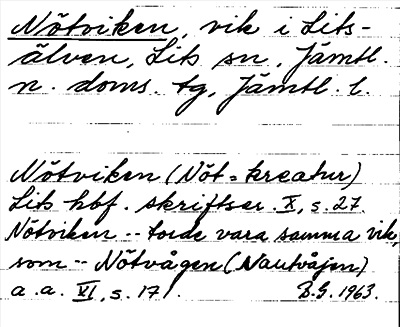 Nötviken, vik i Lits-
älven, Lits sn, Jämtl.
n. doms. tg, Jämtl. l.
Nötviken (Nöt = kreatur)
Lits hbf. skriftser. X, s. 27.
Nötviken -- torde vara samma vik,
som -- Nötvågen (Nautvåjen)
a. a. VI, s. 171. B.G. 1963.